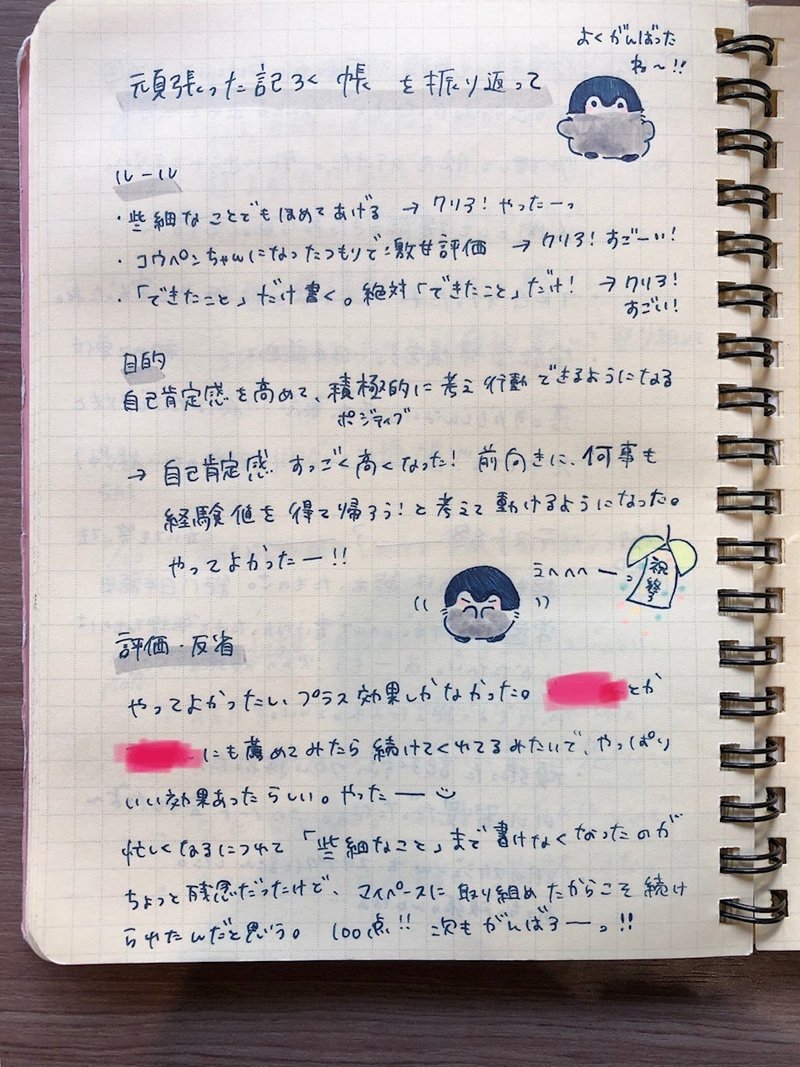 よくがんばった
ね〜!!
頑張った記ろく帳を振り返って
ルール
・些細なことでもほめてあげる → クリア! やったーっ
・コウペンちゃんになったつもりで激甘評価 → クリア! すごーい!
・「できたこと」だけ書く。絶対「できたこと」だけ! → クリア!
すごい!
目的
自己肯定感を高めて、積極的に考え行動できるようになる
ポジティブ
→ 自己肯定感すっごく高くなった! 前向きに、何事も
経験値を得て帰ろう!と考えて動けるようになった。
やってよかったー!!
えへへーっ
祝 終了
評価・反省
やってよかったしプラス効果しかなかった。 とか
にも薦めてみたら続けてくれてるみたいで、やっぱり
いい効果あったらしい。やったー
忙しくなるにつれて「些細なこと」まで書けなくなったのが
ちょっと残念だったけど、マイペースに取り組めたからこそ続け
られたんだと思う。 100点!! 次もがんばろーっ!!